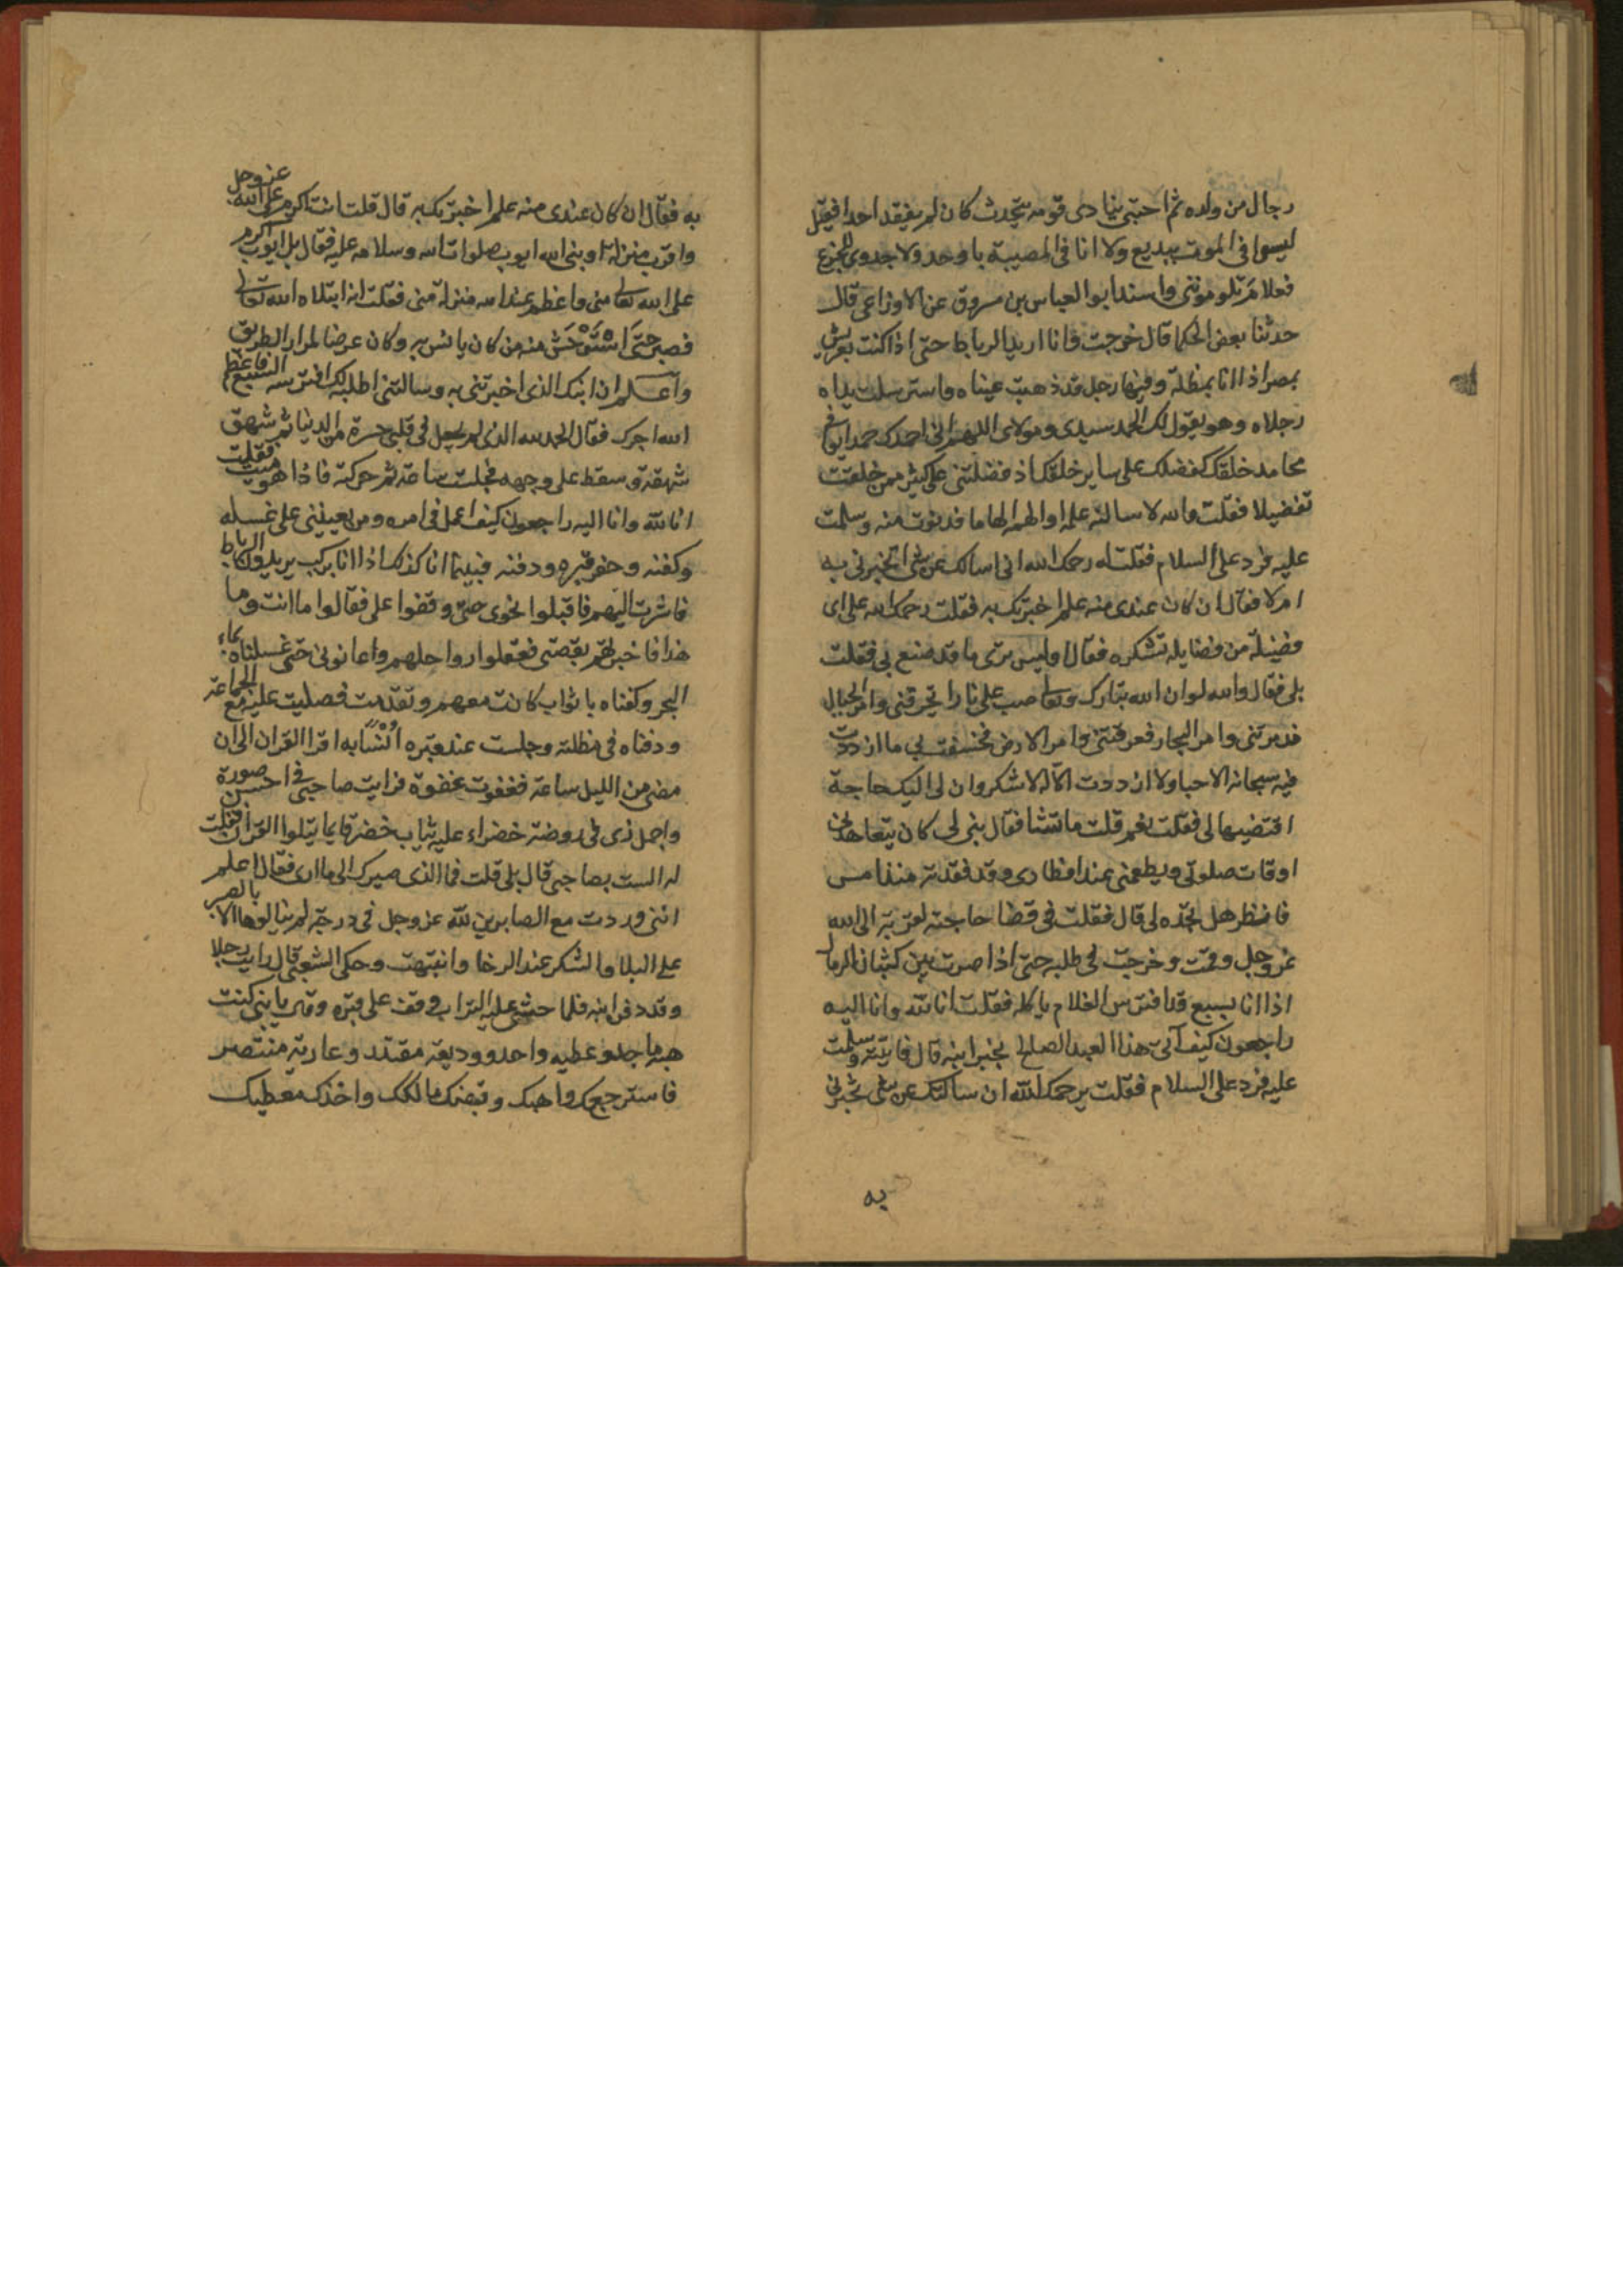 رجال من ولده ثم احتبى ينادى قومه يتحدث كان لم يفقد احدا فقيل
ليسوا فى الموت ببديع ولا انا فى المصيبة باوحد ولا جدوى للجزع
فعلام تلوموننى واسند ابو العباس بن مسروق عن الاوزاعى قال
حدثنا بعض الحكما قال خرجت وانا اريد الرباط حتى اذا كنت بعريش
بمصر اذا انا بمظلة وفيها رجل قد ذهبت عيناه واسترسلت يداه
رجلاه وهو يقول لك الحمد سيدى ومولاى اللهم انى احمدك حمدا يوافى
محامد خلقك كفضلك على ساير خلقك اذ فضلتنى على كثير ممن خلقت
تفضيلا فقلت والله لاسالنه علمه او الهم الهاما فدنوت منه وسلمت
عليه فرد على السلام فقلت له رحمك الله انى اسالك عن شى اتخبرنى به
ام لا فقال ان كان عندى منه علم اخبرتك به فقلت رحمك الله على اى
فضيلة من فضايله تشكره فقال اوليس ترى ما قد صنع بى فقلت
بلى فقال والله لو ان الله تبارك وتعالى صب على نارا تحرقنى وامر الجبال
فدمرتنى وامر البحار فغرقتنى وامر الارض فخسفت بى ما ازددت
فيه سبحانه الا حبا ولا ازددت له الا شكرا وان لى اليك حاجة
اقتضيها لى فقلت نعم قلت ما تشا فقال بنى لى كان يتعاهدنى
اوقات صلوتى ويطعمنى عند افطارى وقد فقدته منذ امس
فانظر هل تجده لى قال فقلت فى قضا حاجته لقربة الى الله
عز وجل وقمت وخرجت فى طلبه حتى اذا صرت بين كثبان الرمال
اذا انا بسبع قد افترس الغلام ياكله فقلت انا لله وانا اليه
راجعون كيف آتى هذا العبد الصالح بخبر ابنه قال فاتيته وسلمت
عليه فرد على السلام فقلت يرحمك الله ان سالتك عن شى تخبرنى
به
به فقال ان كان عندى منه علم اخبرتك به قال قلت انت اكرم على الله عز وجل
واقرب منزلة او نبى الله ايوب صلوات الله وسلامه عليه فقال بل ايوب اكرم
على الله تعالى منى واعظم عند الله منزلة منى فقلت انه ابتلاه الله تعالى
فصبر حتى استوحش منه من كان يانس به وكان عرضا لمرار الطريق
واعلم ان ابنك الذى اخبرتنى به وسالتنى اطلبه لك افترسه السبع فاعظم
الله اجرك فقال الحمد لله الذى لم يجعل فى قلبى حسرة من الدنيا ثم شهق
شهقة وسقط على وجهه فجلت ساعة ثم حركته فاذا هو ميت فقلت
انا لله وانا اليه راجعون كيف اعمل فى امره ومن يعيننى على غسله
وكفنه وحفر قبره ودفنه فبينما انا كذلك اذا انا بركب يريدون الرباط
فاشرت اليهم فاقبلوا نحوى حتى وقفوا على فقالوا ما انت وما
هذا فاخبرتهم بقصتى فعقلوا رواحلهم واعانونى حتى غسلناه بماء
البحر وكفناه باثواب كانت معهم وتقدمت فصليت عليه مع الجماعة
ودفناه فى مظلته وجلست عند قبره انسا به اقرا القران الى ان
مضى من الليل ساعة فغفوت غفوة فرايت صاحبى فى احسن صورة
واجمل زى فى روضة خضراء عليه ثياب خضر قايما يتلوا القران فقلت
له الست بصاحبى قال بلى قلت فما الذى صيرك الى ما ارى فقال اعلم
اننى وردت مع الصابرين لله عز وجل فى درجة لم ينالوها الا بالصبر
على البلا والشكر عند الرخا وانتبهت وحكى الشعبى قال رايت رجلا
وقد دفن ابنه فلما حثى عليه التراب وقف على قبره وقال يا بنى كنت
هبة ماجد وعطيه واحد ووديعة مقتدر وعارية منتصر
فاسترجعك واهبك وقبضك مالكك واخذك معطيك